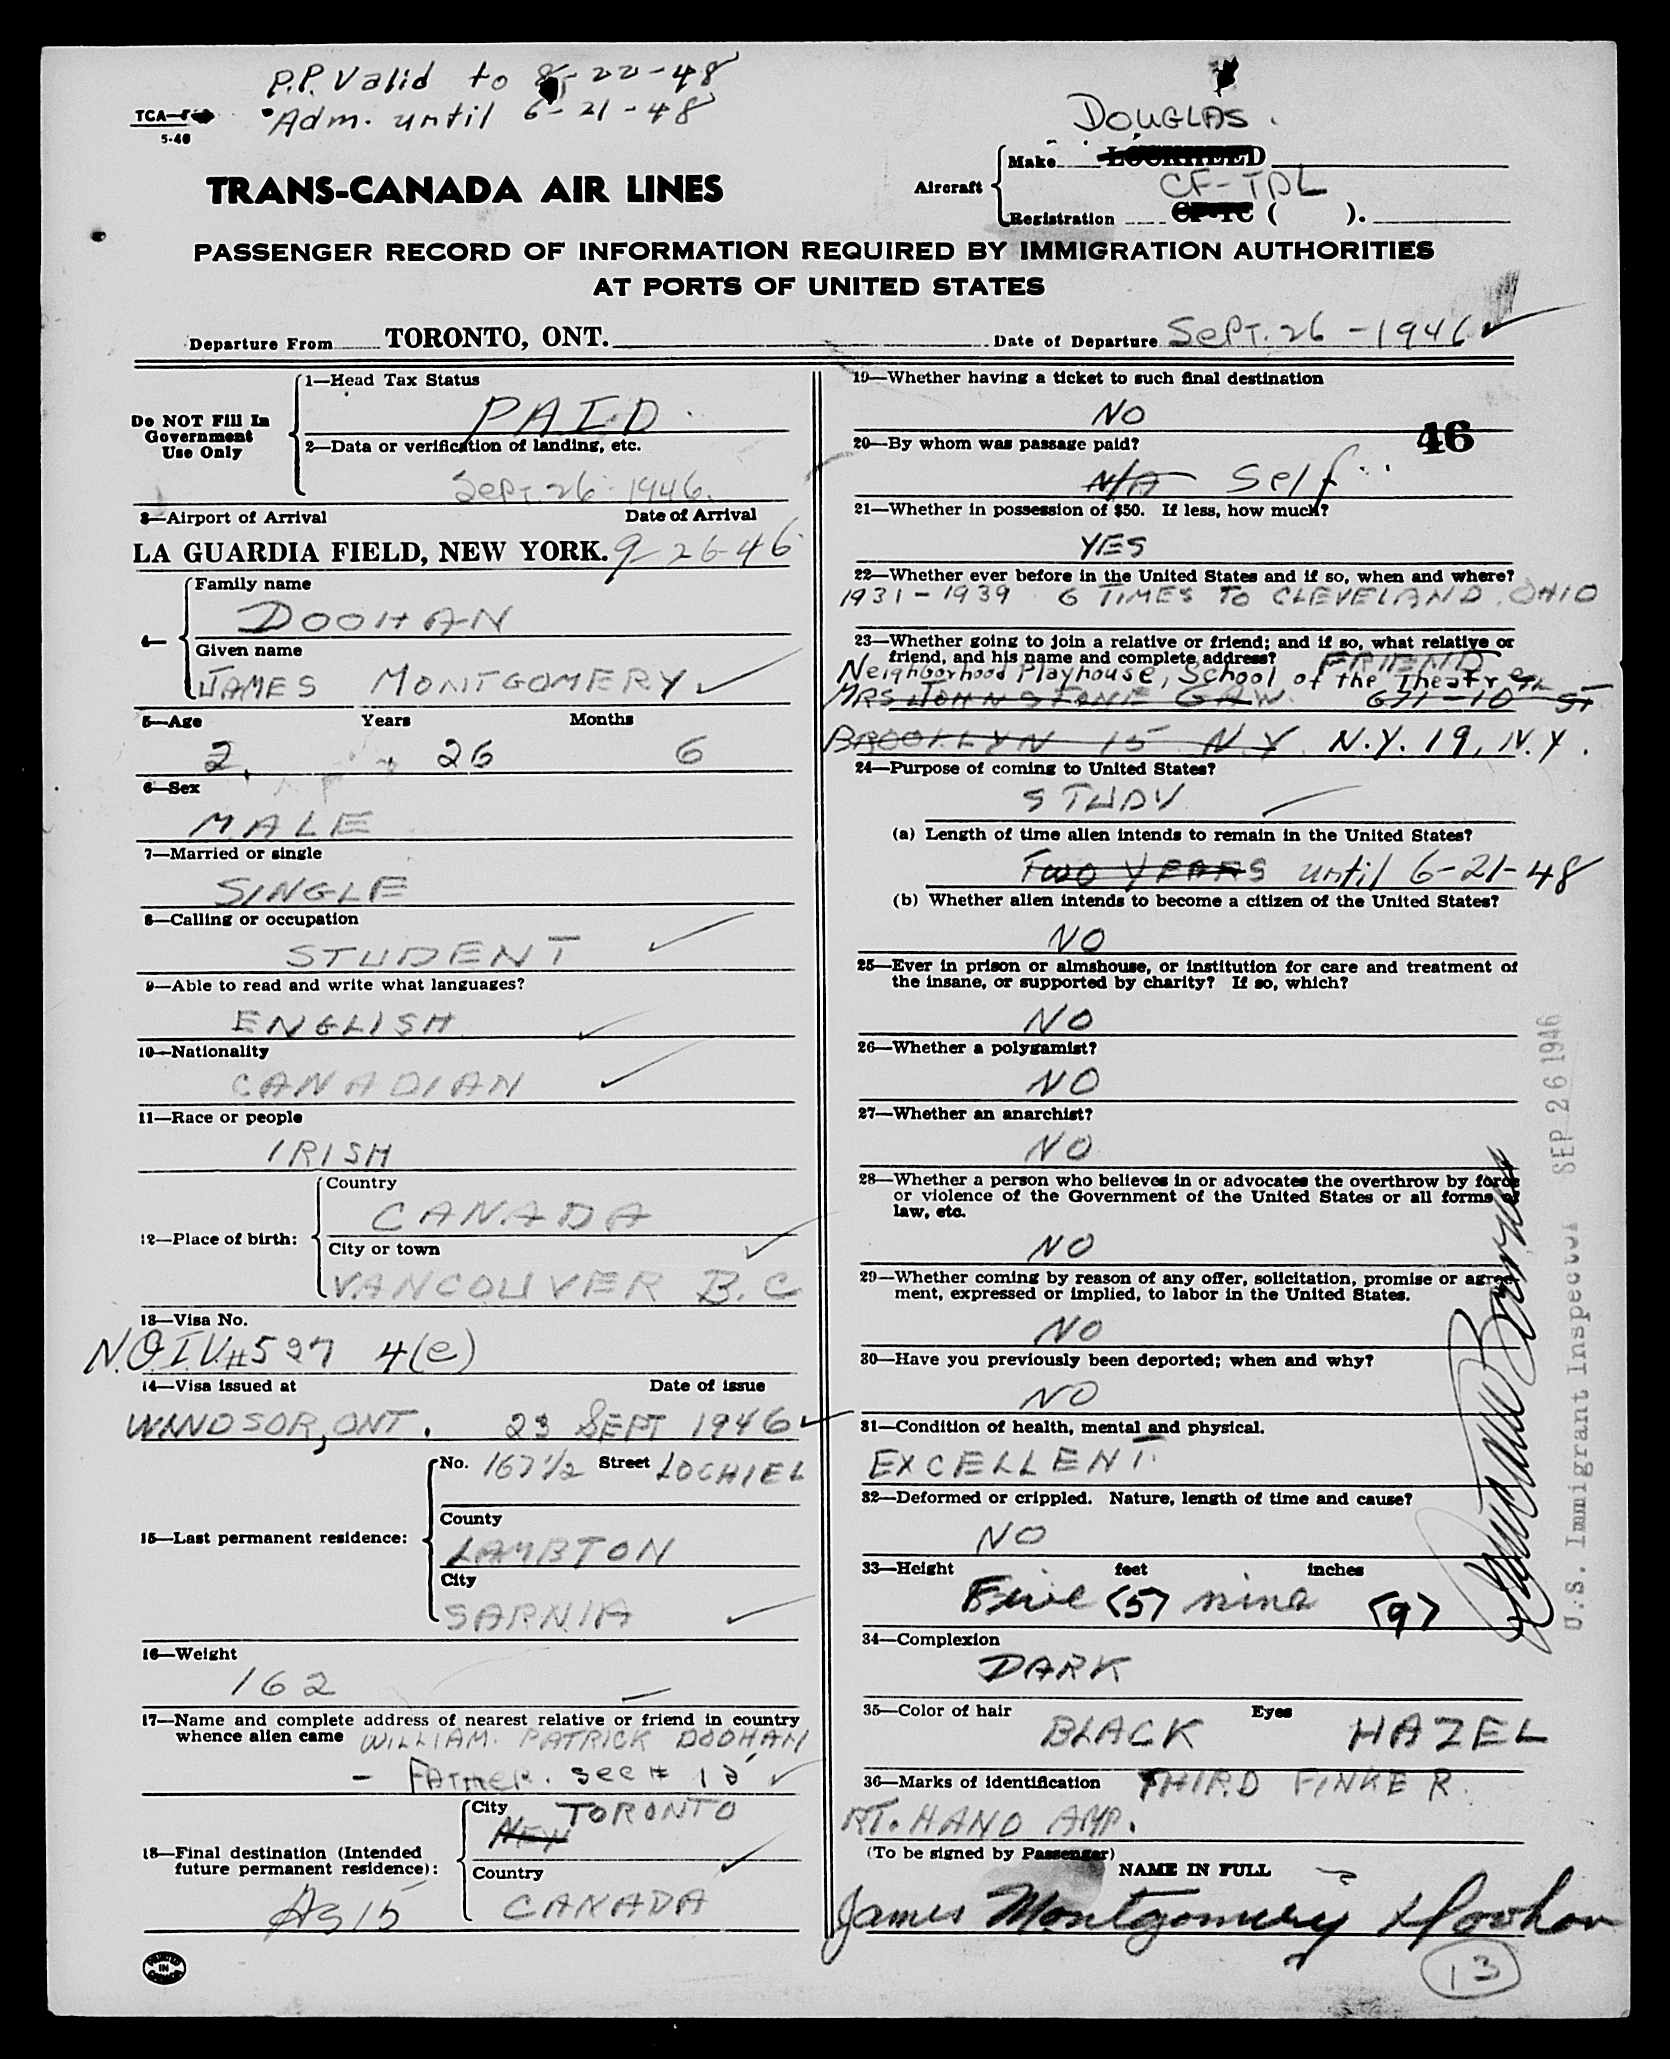 P.P. Valid to 8-22-48
Adm. until 6-21-48
TCA—
5-46
DOUGLAS.
Aircraft
Make LOCKHEED
CF-TDL
Registration CF-TC ( ).
TRANS-CANADA AIR LINES
PASSENGER RECORD OF INFORMATION REQUIRED BY IMMIGRATION AUTHORITIES
AT PORTS OF UNITED STATES
Departure From TORONTO, ONT. Date of Departure SEPT. 26 - 1946
Do NOT Fill In
Government
Use Only
1—Head Tax Status
PAID
2—Data or verification of landing, etc.
Sept. 26 1946.
3—Airport of Arrival Date of Arrival
LA GUARDIA FIELD, NEW YORK. 9-26-46
4—
Family name
DOOHAN
Given name
JAMES MONTGOMERY
5—Age Years Months
2 26 6
6—Sex
MALE
7—Married or single
SINGLE
8—Calling or occupation
STUDENT
9—Able to read and write what languages?
ENGLISH
10—Nationality
CANADIAN
11—Race or people
IRISH
12—Place of birth:
Country
CANADA
City or town
VANCOUVER B.C
13—Visa No.
N.Q.I.V.#527 4(e)
14—Visa issued at Date of issue
WINDSOR, ONT. 23 SEPT 1946
15—Last permanent residence:
No. 167 1/2 Street LOCHIEL
County
LAMBTON
City
SARNIA
16—Weight
162
17—Name and complete address of nearest relative or friend in country
whence alien came WILLIAM. PATRICK DOOHAN
- FATHER. See # 15
18—Final destination (Intended
future permanent residence):
City TORONTO
NEW
Country
CANADA
As 15
PRINTED
IN
CANADA
19—Whether having a ticket to such final destination
NO
46
20—By whom was passage paid?
N/A Self
21—Whether in possession of $50. If less, how much?
YES
22—Whether ever before in the United States and if so, when and where?
1931 - 1939 6 TIMES TO CLEVELAND, OHIO
23—Whether going to join a relative or friend; and if so, what relative or
friend, and his name and complete address? FRIEND
Neighborhood Playhouse, School of the Theatre
MRS JOHN STONE GAW. 671 - 10 ST
BROOKLYN 15 N.Y. N.Y. 19, N.Y.
24—Purpose of coming to United States?
STUDY
(a) Length of time alien intends to remain in the United States?
TWO YEARS until 6-21-48
(b) Whether alien intends to become a citizen of the United States?
NO
25—Ever in prison or almshouse, or institution for care and treatment of
the insane, or supported by charity? If so, which?
NO
26—Whether a polygamist?
NO
27—Whether an anarchist?
NO
28—Whether a person who believes in or advocates the overthrow by force
or violence of the Government of the United States or all forms of
law, etc.
NO
29—Whether coming by reason of any offer, solicitation, promise or agree-
ment, expressed or implied, to labor in the United States.
NO
30—Have you previously been deported; when and why?
NO
31—Condition of health, mental and physical.
EXCELLENT.
32—Deformed or crippled. Nature, length of time and cause?
NO
33—Height feet inches
Five (5) nine (9)
34—Complexion
DARK
35—Color of hair Eyes
BLACK HAZEL
36—Marks of identification THIRD FINKER.
RT. HAND AMP.
(To be signed by Passenger)
NAME IN FULL
James Montgomery Doohan
13
U.S. Immigrant Inspector SEP 26 1946